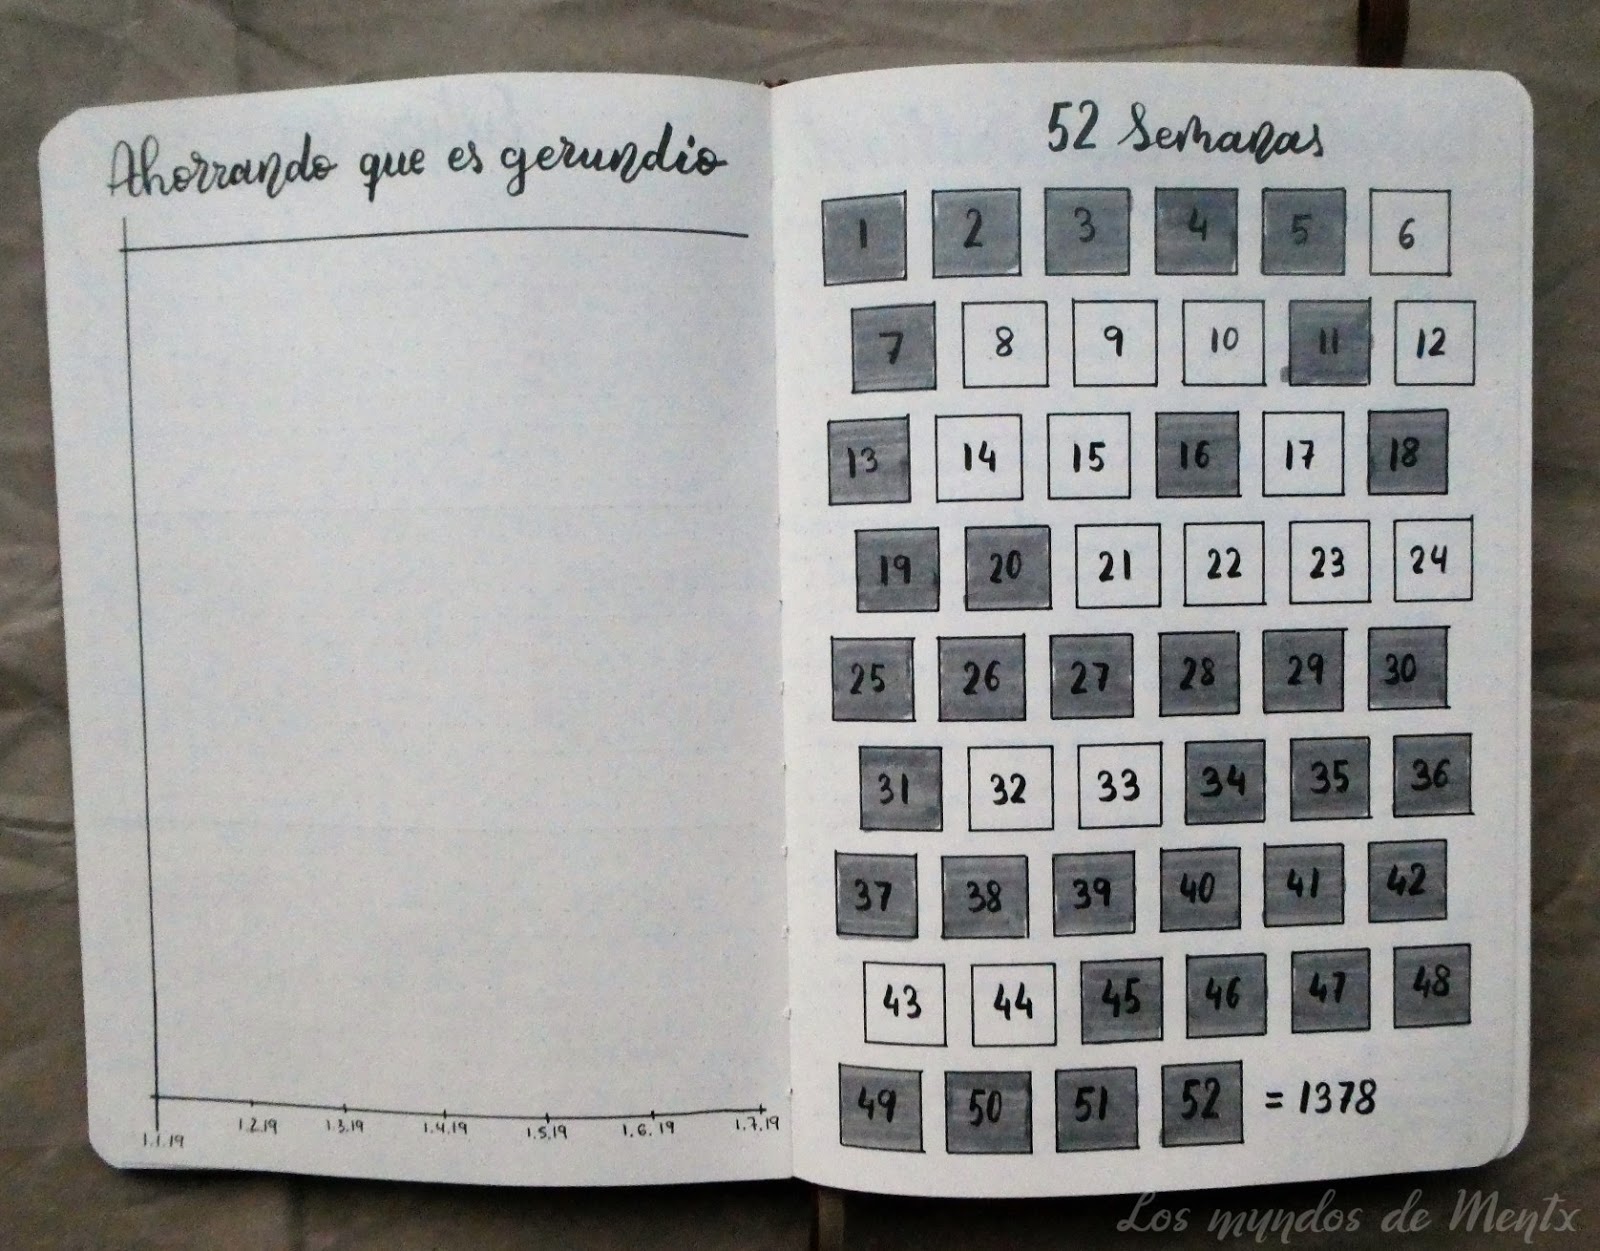 Ahorrando que es gerundio
1.1.19 1.2.19 1.3.19 1.4.19 1.5.19 1.6.19 1.7.19
52 Semanas
1 2 3 4 5 6
7 8 9 10 11 12
13 14 15 16 17 18
19 20 21 22 23 24
25 26 27 28 29 30
31 32 33 34 35 36
37 38 39 40 41 42
43 44 45 46 47 48
49 50 51 52 = 1378
Los mundos de Mentx